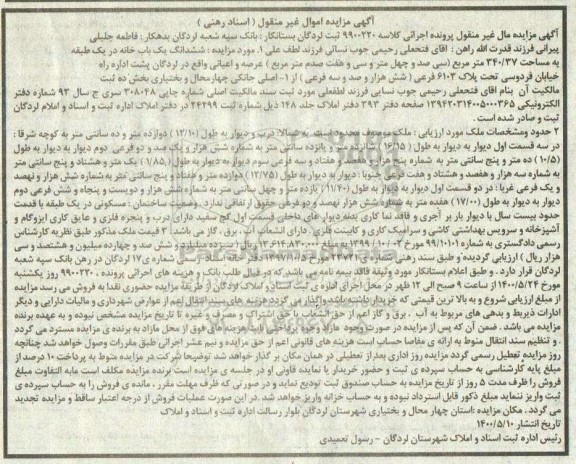 آگهی مزایده اموال غیر منقول ( اسناد رهنی )
آگهی مزایده مال غیر منقول پرونده اجرائی کلاسه ۹۹۰۰۲۲۰ ثبت لردگان بستانکار : بانک سپه شعبه لردگان بدهکار : فاطمه جلیلی
پیرانی فرزند قدرت الله راهن : آقای فتحعلی رحیمی جوب نسائی فرزند لطف علی ۱. مورد مزایده : ششدانگ یک باب خانه در یک طبقه
به مساحت ۳۴۰/۳۷ متر مربع (سی صد و چهل متر و سی و هفت صدم متر مربع ) عرصه و اعیانی واقع در لردگان پشت اداره راه
خیابان فردوسی تحت پلاک ۶۱۰۳ فرعی ( شش هزار و صد و سه فرعی ) از ۱- اصلی خانکی چهارمحال و بختیاری بخش ده ثبت
مالکیت آن بنام آقای فتحعلی رحیمی جوب نسایی فرزند لطفعلی مورد ثبت سند مالکیت اصلی شماره چاپی ۳۰۸۰۴۸ سری ج سال ۹۳ شماره دفتر
الکترونیکی ۱۳۹۴۲۰۳۱۴۰۰۵۰۰۰۳۶۵ صفحه دفتر ۳۹۳ دفتر املاک جلد ۱۴۸ ذیل شماره ثبت ۲۴۲۹۹ در دفتر املاک اداره ثبت و اسناد و املاک لردگان
ثبت و صادر شده است .
۲ حدود و مشخصات ملک مورد ارزیابی : ملک موصوف محدود است به شمالا: درب و دیوار به طول (۱۲/۱۰) دوازده متر و ده سانتی متر به کوچه شرقا :
در سه قسمت اول دیوار به دیوار به طول (۱۶/۱۵) شانزده متر و پانزده سانتی متر به شماره شش هزار و یک صد و دو فرعی دوم دیوار به دیوار به طول
(۱۰/۵) ده متر و پنج سانتی متر به شماره پنج هزار و هفتاد و سه فرعی سوم دیوار به دیوار به طول (۱/۸۵) یک متر و هشتاد و پنج سانتی متر
به شماره سه هزار و هفصد و هشتاد و هفت فرعی جنوبا : دیوار به دیوار به طول (۱۲/۷۵) دوازده متر و هفتاد و پنج سانتی متر به شماره شش هزار و نهصد
و یک فرعی غربا : در دو قسمت اول دیوار به دیوار به طول (۱۱/۴۰) یازده متر و چهل سانتی متر به شماره شش هزار و دویست و پنجاه و شش فرعی دوم
دیوار به دیوار به طول (۱۷/۰۰) هفده متر به شماره شش هزار و نهصد و دو فرعی حقوق ارتفاقی ندارد . وضعیت ساختمان : مسکونی در یک طبقه با قدمت
حدود بیست سال با دیوار بار بر آجری و فاقد نما کاری بدنه دیوار های داخلی قسمت اول گچ سفید دارای درب و پنجره فلزی و عایق کاری ایزوگام و
آشپزخانه و سرویس بهداشتی کاشی و سرامیک کاری و کابینت فلزی . دارای انشعاب آب ، برق ، گاز می باشد . ۳ قیمت ملک مذکور طبق نظریه کارشناس
رسمی دادگستری به شماره ۹۹/۱۰۱۰۱ مورخ ۱۳۹۹/۱۰/۰۲ ۱۳,۶۱۴,۸۳۰,۰۰۰ ریال ( سیزده میلیارد و شش صد و چهارده میلیون و هشتصد و سی
هزار ریال ) ارزیابی گردیده و طبق سند رهنی شماره ۲۳۷۲۱ مورخ ۱۳۹۷/۱۰/۵ دفتر خانه اسناد رسمی شماره ی ۱۷ لردگان در رهن بانک سپه شعبه
لردگان قرار دارد . و طبق اعلام بستانکار مورد وثیقه فاقد بیمه نامه می باشد که در قبال طلب بانک و هزینه های اجرائی پرونده ۹۹۰۰۲۲۰ . روز یکشنبه
مورخ ۱۴۰۰/۵/۲۴ از ساعت ۹ صبح الی ۱۲ ظهر در محل اجرای اداره ی ثبت اسناد و املاک لردگان از طریق مزایده حضوری نقدا به فروش می رسد مزایده
از مبلغ ارزیابی شروع و به بالا ترین قیمتی که خریدار داشته باشد واگذار می گردد هزینه های سند انتقال اعم از عوارض شهرداری و مالیات دارایی و دیگر
ادارات ذیربط و بدهی های مربوط به آب . برق و گاز اعم از حق انشعاب یا حق اشتراک و مصرف و غیره تا تاریخ مزایده مشخص نبوده و به عهده برنده
مزایده می باشد . ضمن آن که پس از مزایده در صورت وجود مازاد وجوه پرداختی بابت هزینه های فوق از محل مازاد به برنده ی مزایده مسترد می گردد
. و تنظیم سند انتقال منوط به ارائه ی مفاصا حساب است هزینه های قانونی اعم از حق مزایده و نیم عشر اجرائی طبق مقررات وصول خواهد شد چنانچه
روز مزایده تعطیل رسمی گردد مزایده روز اداری بعد از تعطیلی در همان مکان بر گذار خواهد شد توضیحا شرکت در مزایده منوط به پرداخت ۱۰ درصد از
مبلغ پایه کارشناسی به حساب سپرده ی ثبت و حضور خریدار یا نماینده قانونی او در جلسه ی مزایده است برنده مزایده مکلف است مابه التفاوت مبلغ
فروش را ظرف مدت ۵ روز از تاریخ مزایده به حساب صندوق ثبت تودیع نماید و در صورتی که ظرف مهلت مقرر ، مانده ی فروش را به حساب سپرده ی
ثبت واریز ننماید مبلغ مذکور قابل استرداد نبوده و به حساب خزانه واریز خواهد شد .در این صورت عملیات فروش از درجه اعتبار ساقط و مزایده تجدید
می گردد . مکان مزایده :استان چهار محال و بختیاری شهرستان لردگان بلوار رسالت اداره ثبت و اسناد و املاک
تاریخ انتشار ۱۴۰۰/۵/۱۰
رئیس اداره ثبت اسناد و املاک شهرستان لردگان - رسول تعمیدی